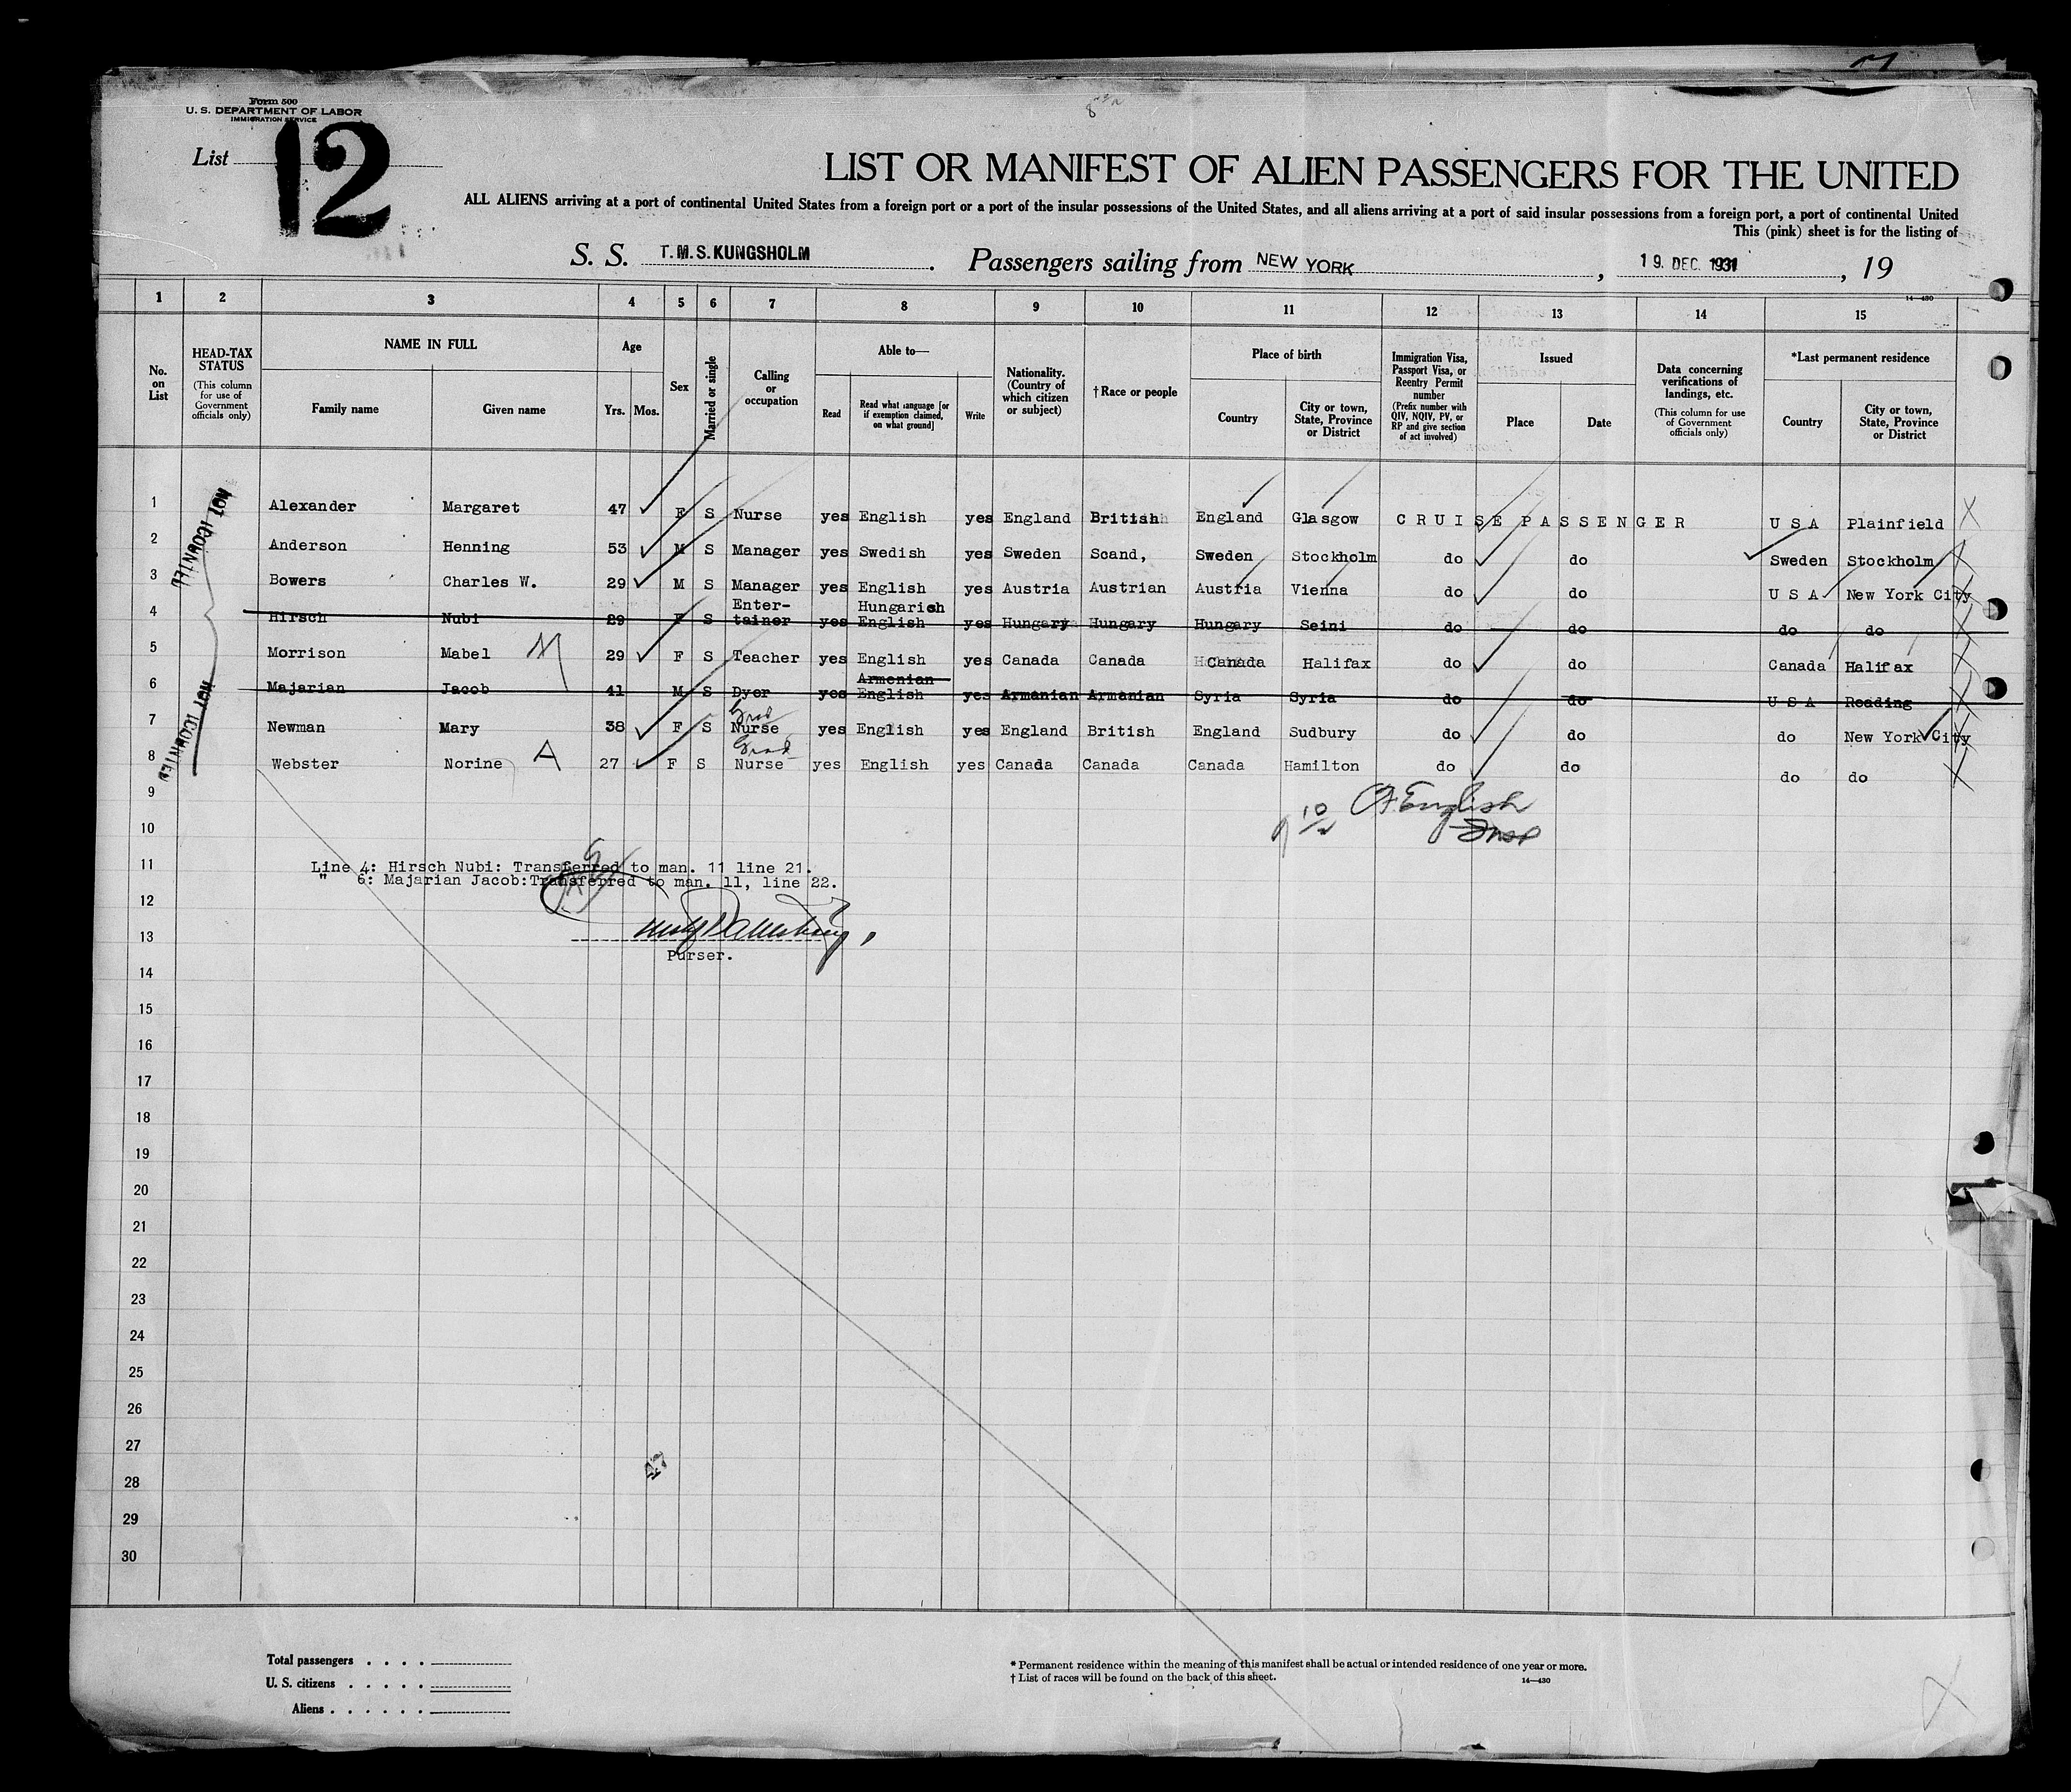 Form 500
U. S. DEPARTMENT OF LABOR
IMMIGRATION SERVICE
List 12
LIST OR MANIFEST OF ALIEN PASSENGERS FOR THE UNITED
ALL ALIENS arriving at a port of continental United States from a foreign port or a port of the insular possessions of the United States, and all aliens arriving at a port of said insular possessions from a foreign port, a port of continental United
This (pink) sheet is for the listing of
S. S. T.M.S.KUNGSHOLM. Passengers sailing from NEW YORK, 19. DEC. 1931, 19
14—430
1 2 3 4 5 6 7 8 9 10 11 12 13 14 15
No. on List
HEAD-TAX STATUS
(This column for use of Government officials only)
NAME IN FULL
Family name Given name
Age
Yrs. Mos.
Sex
Married or single
Calling or occupation
Able to—
Read Read what language [or if exemption claimed, on what ground] Write
Nationality. (Country of which citizen or subject)
†Race or people
Place of birth
Country City or town, State, Province or District
Immigration Visa, Passport Visa, or Reentry Permit number
(Prefix number with QIV, NQIV, PV, or RP and give section of act involved)
Issued
Place Date
Data concerning verifications of landings, etc.
(This column for use of Government officials only)
*Last permanent residence
Country City or town, State, Province or District
NOT IDENTIFIED
1 Alexander Margaret 47 F S Nurse yes English yes England British England Glasgow CRUISE PASSENGER U S A Plainfield
2 Anderson Henning 53 M S Manager yes Swedish yes Sweden Scand, Sweden Stockholm do do Sweden Stockholm
3 Bowers Charles W. 29 M S Manager yes English yes Austria Austrian Austria Vienna do do U S A New York City
4 Hirsch Nubi 29 F S Enter-tainer yes Hungarish English yes Hungary Hungary Hungary Seini do do do do
5 Morrison Mabel M 29 F S Teacher yes English yes Canada Canada Canada Halifax do do Canada Halifax
6 Majarian Jacob 41 M S Dyer yes Armenian English yes Armenian Armenian Syria Syria do do U S A Reading
7 Newman Mary 38 F S Grad Nurse yes English yes England British England Sudbury do do do New York City
8 Webster Norine A 27 F S Grad Nurse yes English yes Canada Canada Canada Hamilton do do do do
NOT IDENTIFIED
9
English
10
11
Line 4: Hirsch Nubi: Transferred to man. 11 line 21.
" 6: Majarian Jacob:Transferred to man. 11, line 22.
12
13
Purser.
14
15
16
17
18
19
20
21
22
23
24
25
26
27
28
29
30
Total passengers . . . .
U. S. citizens . . . . .
Aliens . . . . . .
* Permanent residence within the meaning of this manifest shall be actual or intended residence of one year or more.
† List of races will be found on the back of this sheet.
14—430